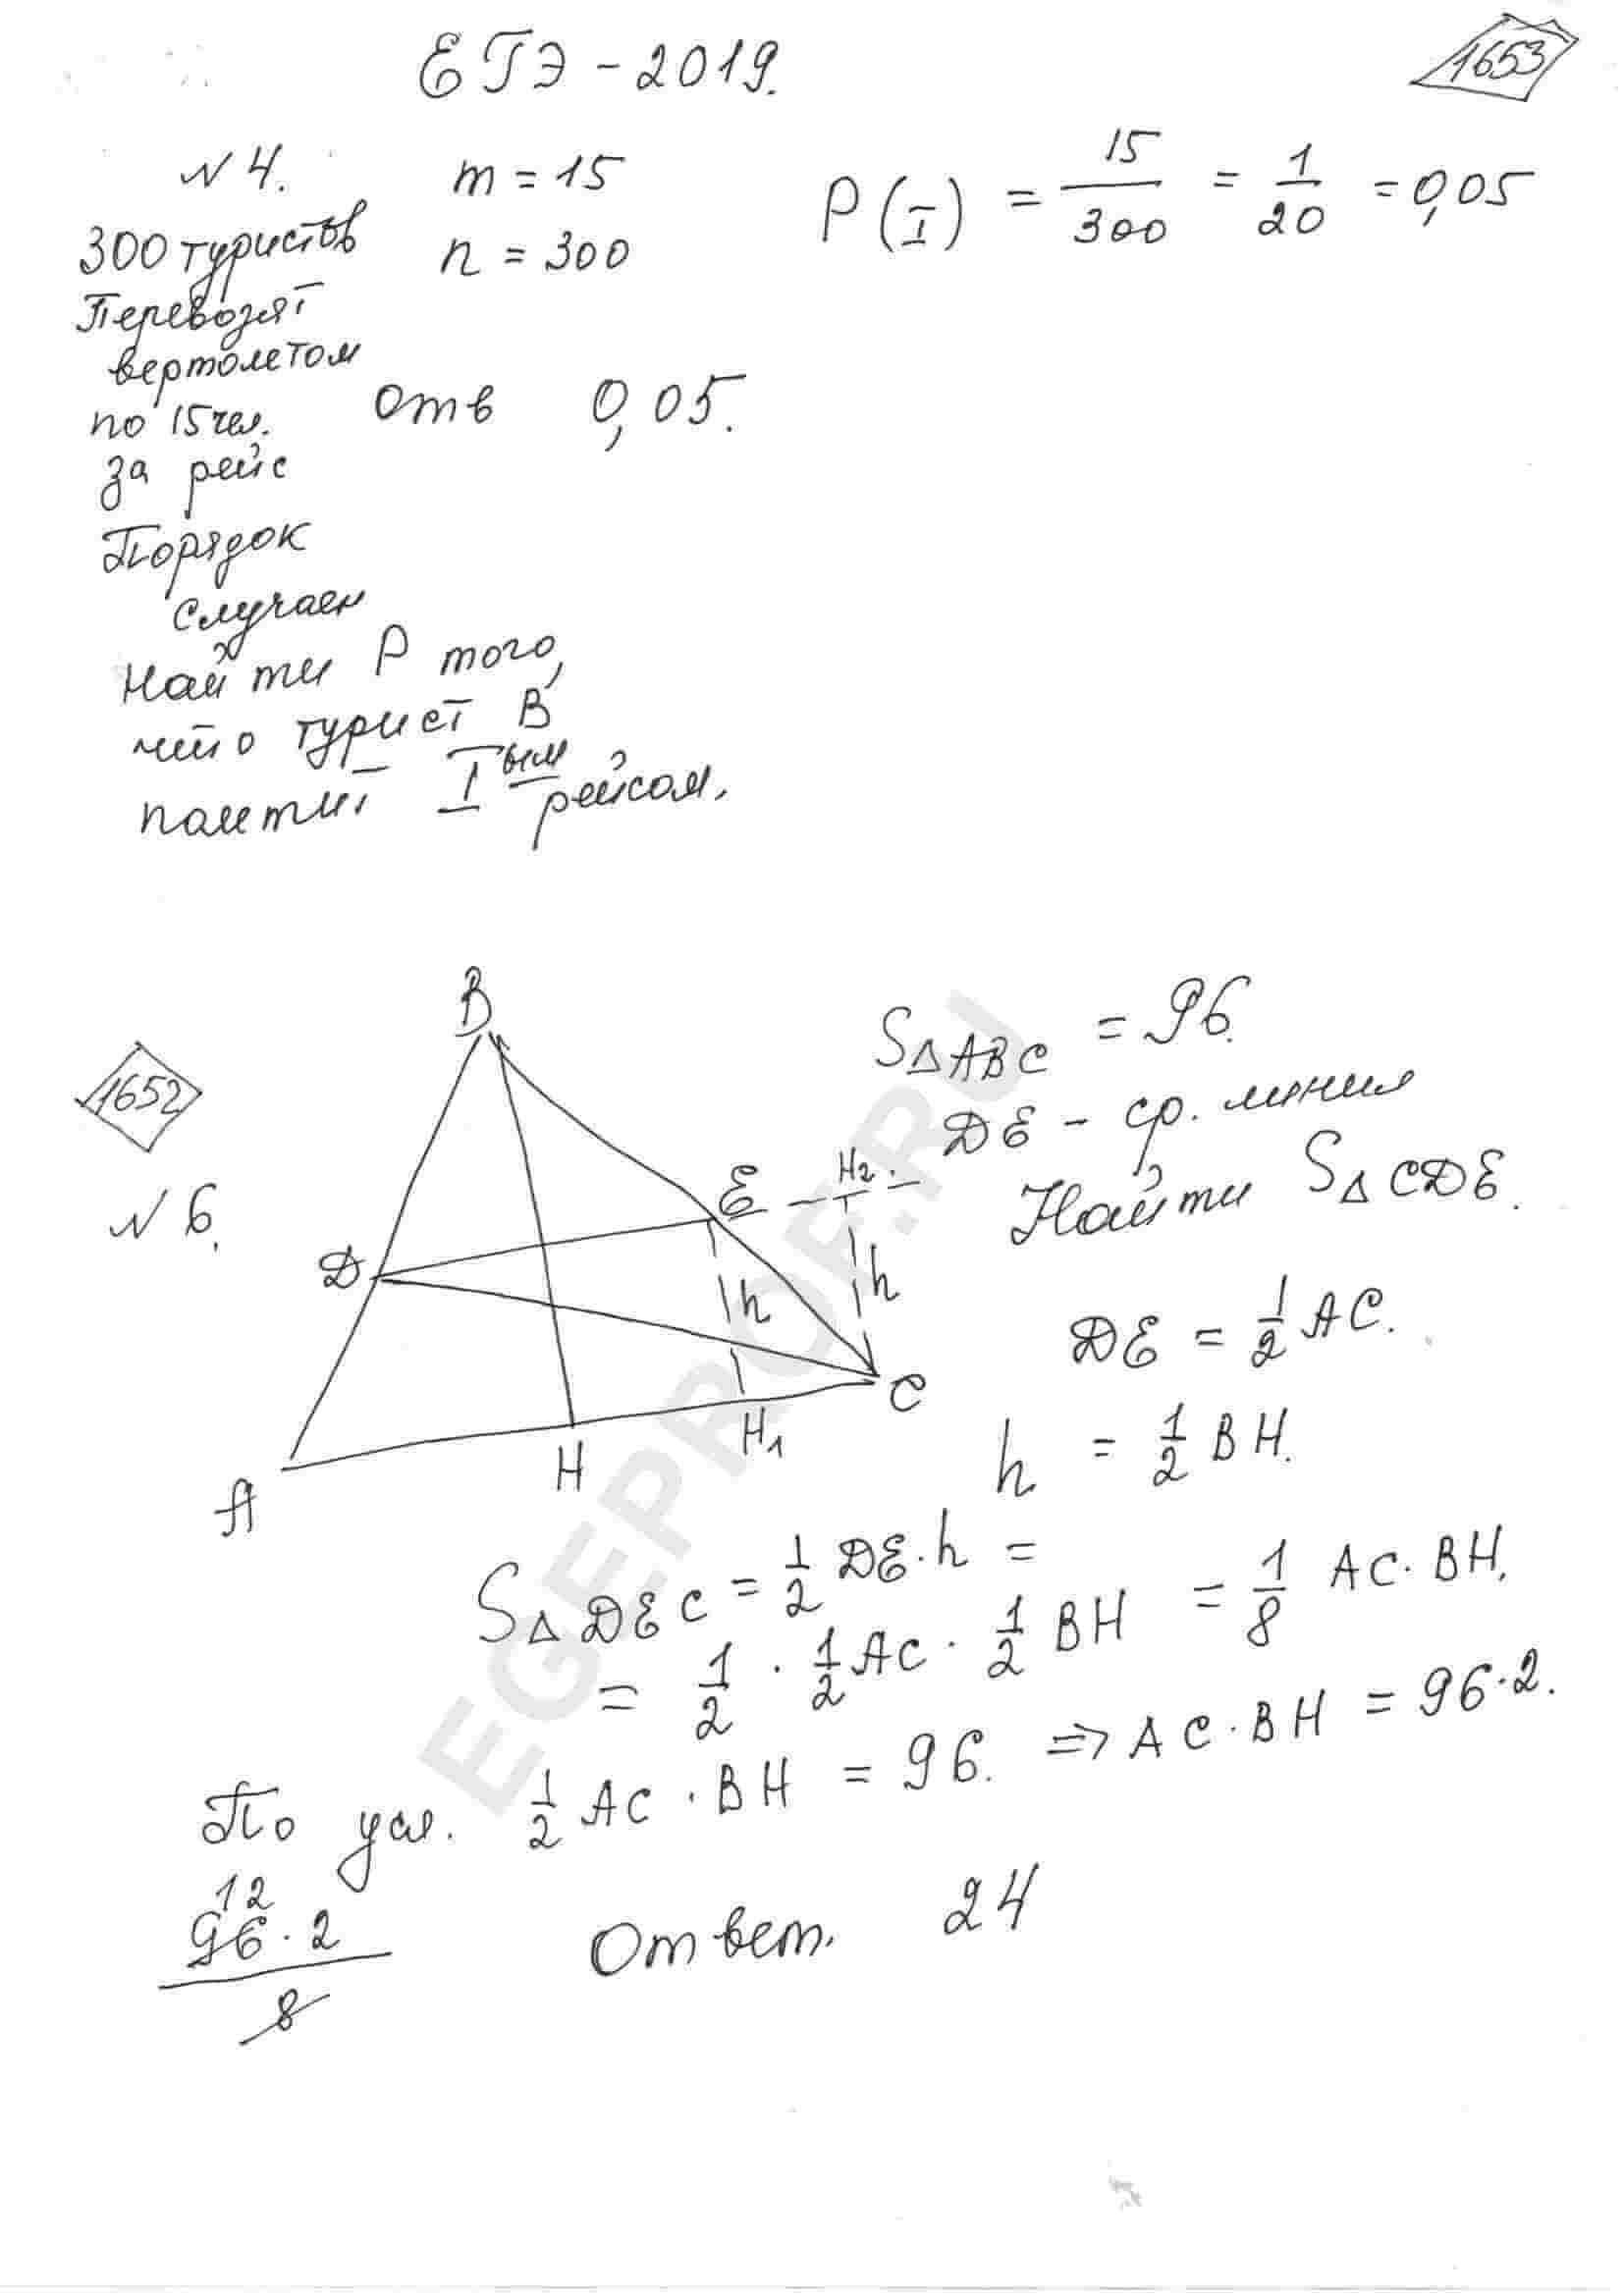 ЕГЭ - 2019.
1653
№ 4.
300 туристов
Перевозят
вертолетом
по 15 чел.
за рейс
Порядок
случаен
Найти Р того,
что турист В
полетит I ым рейсом.
m = 15
n = 300
P(I) = 15/300 = 1/20 = 0,05
Отв 0,05.
1652
№ 6.
B
D
E
H₂
h
h
C
H₁
H
A
S△ABC = 96.
DE - ср. линия
Найти S△CDE.
DE = 1/2 AC.
h = 1/2 BH.
S△DEC = 1/2 DE · h =
= 1/2 · 1/2 AC · 1/2 BH = 1/8 AC · BH.
По усл. 1/2 AC · BH = 96. => AC · BH = 96 · 2.
12
96 · 2
8
Ответ. 24
EGEPROF.RU